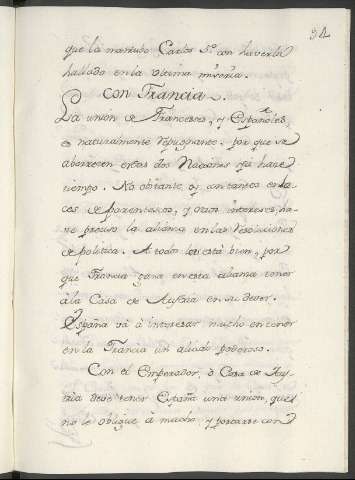 94
que la mantubo Carlos 5º con haverla
hallado en la ultima miseria.
Con Francia.
La union de Franceses, y Españoles,
es naturalmente repugnante: por que se
aborrecen estas dos Naciones ya hace
tiempo. No obstante oy con tantos enla
ces de parentescos, y otros intereses, ha
ce preciso la alianza en las resoluciones
de politica. A todos les está bien, por
que Francia gana en esta alianza tener
á la Casa de Austria en su dever.
España vá á interesar mucho en tener
en la Francia un aliado poderoso.
Con el Emperador, ó Casa de Aus
tria deve tener España una union, que
no le obligue á mucho, y portarse con